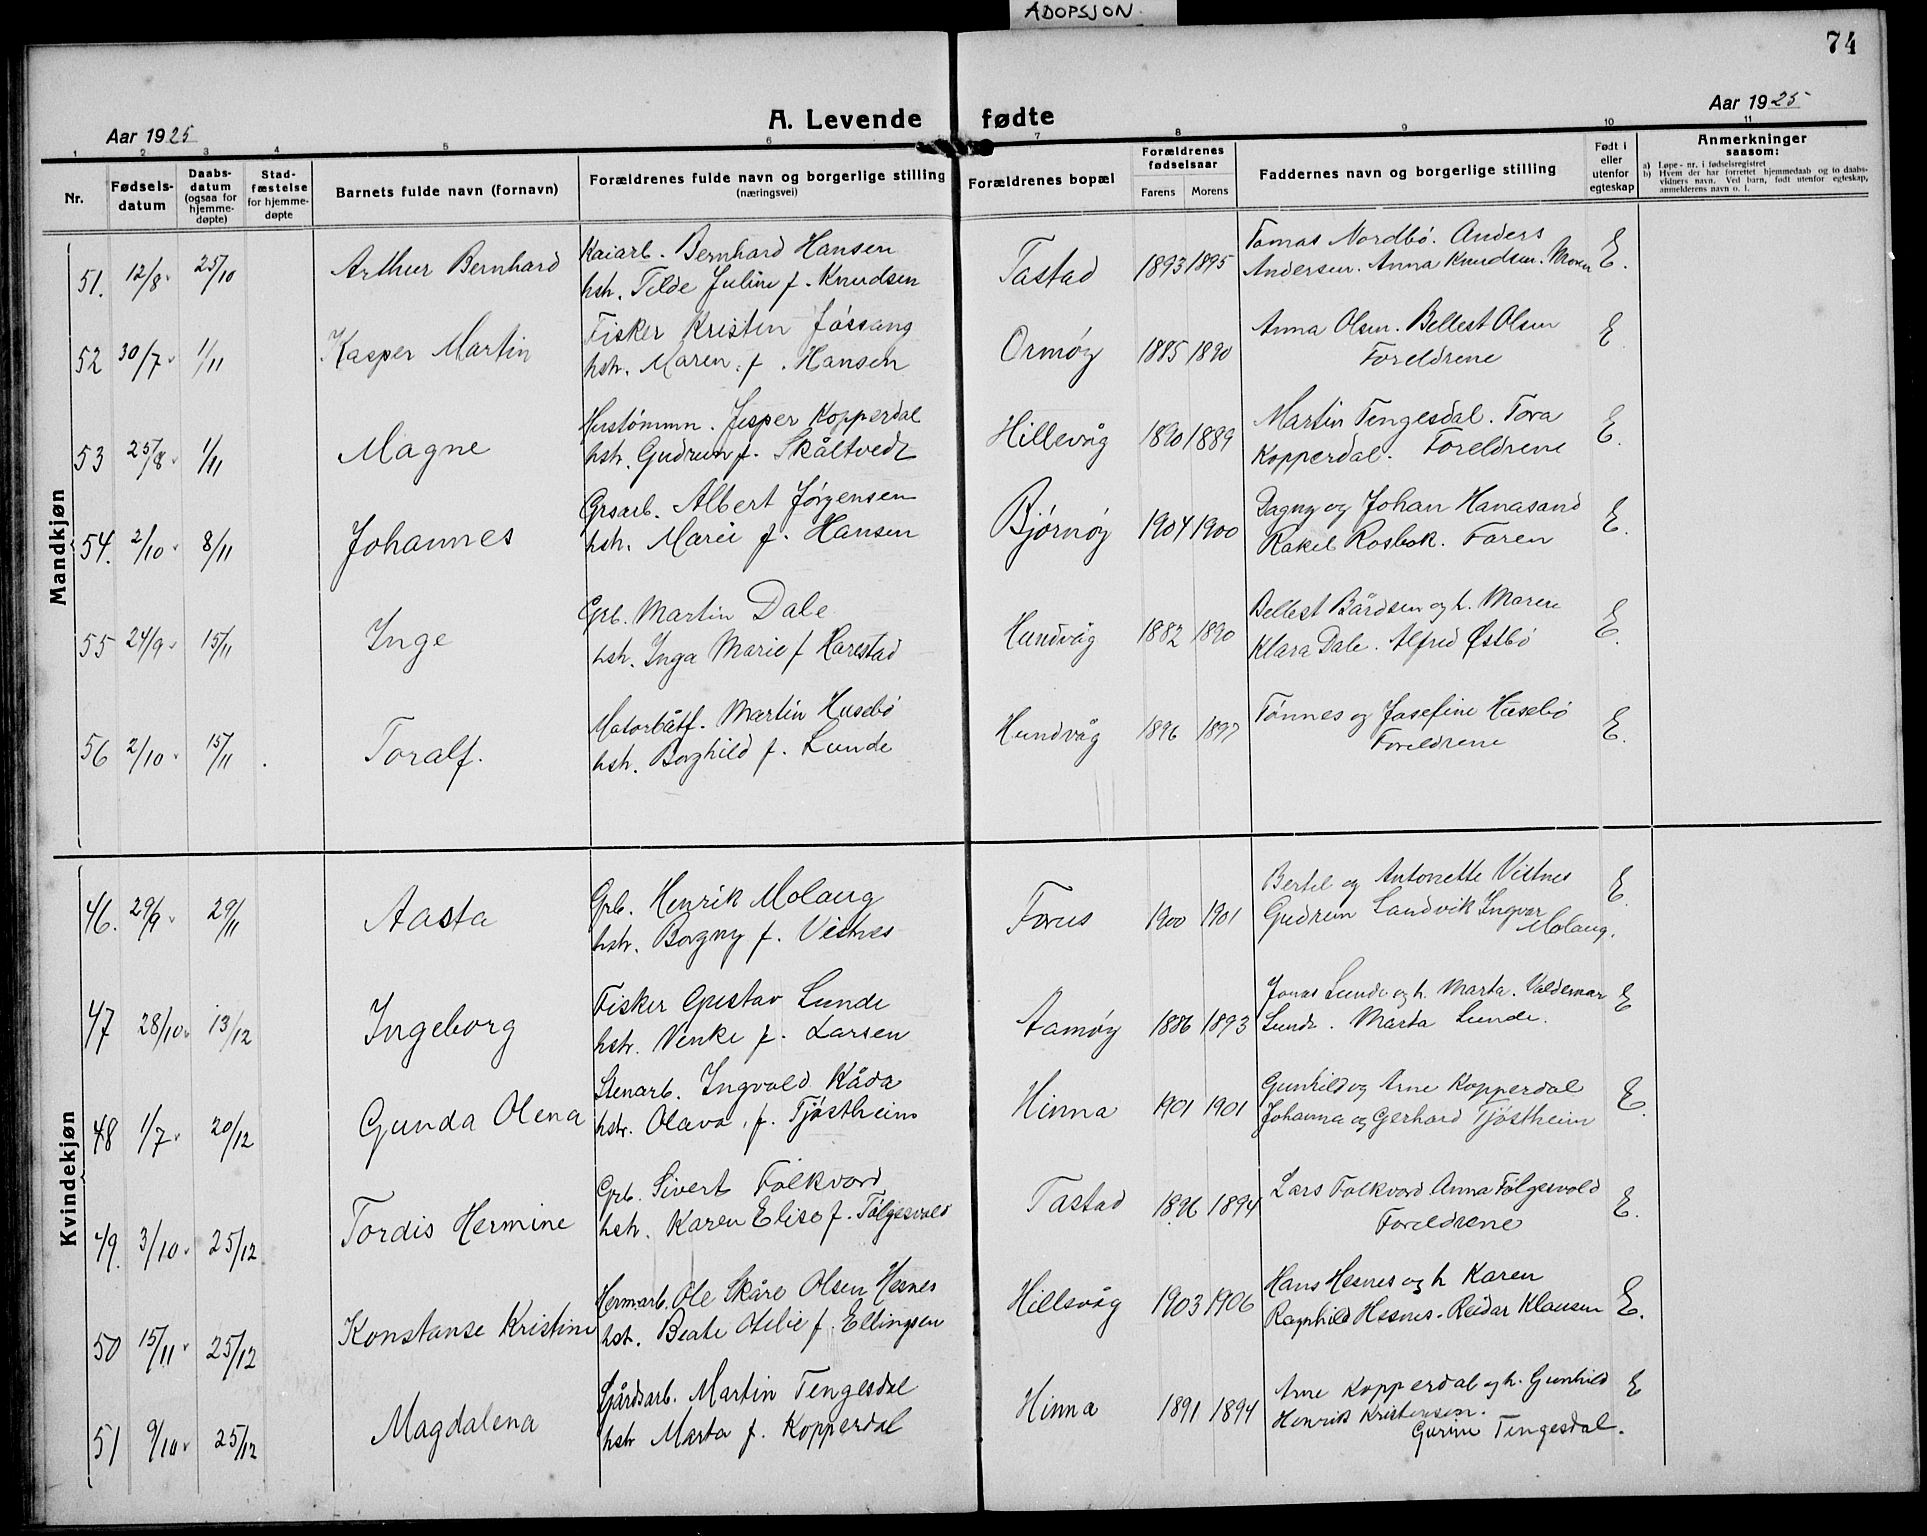 ADOPSJON.
74
Aar 1925
A. Levende fødte
Aar 1925
1 2 3 4 5 6 7 8 9 10 11
Nr.
Fødsels-
datum
Daabs-
datum
(ogsaa for
hjemme-
døpte)
Stad-
fæstelse
for hjemme-
døpte
Barnets fulde navn (fornavn)
Forældrenes fulde navn og borgerlige stilling
(næringsvei)
Forældrenes bopæl
Forældrenes
fødselsaar
Farens Morens
Faddernes navn og borgerlige stilling
Født i
eller
utenfor
egteskap
Anmerkninger
saasom:
a) Løpe-nr. i fødselsregistret
b) Hvem der har forrettet hjemmedaab og to daabs-
vidners navn. Ved barn, født utenfor egteskap,
anmelderens navn o. l.
Mandkjøn
51. 12/8 25/10 Arthur Bernhard Kaiarb. Bernhard Hansen Tastad 1893 1895 Tomas Nordbö. Anders E.
hstr. Tilde Juline f. Knudsen Andersen. Anna Knudsen. Moren
52 30/7 1/11 Kasper Martin Fisker Kristen Jössang Ormöy 1885 1890 Anna Olsen. Bellest Olsen E
hstr. Maren f. Hansen Foreldrene
53 25/8 1/11 Magne Jesper Kopperdal Hillevåg 1890 1889 Martin Tengesdal. Tora E.
hstr. Gudrun f. Skåltvedt Kopperdal. Foreldrene
54. 2/10 8/11 Johannes Grsarb. Albert Jörgensen Bjørnöy 1904 1900 Dagny og Johan Hanasand E.
hstr. Marie f. Hansen Rakel Rosbok. Faren
55 24/9 15/11 Inge Grb. Martin Dale Hundvåg 1882 1890 Bellest Bårdsen og h. Maren E.
hstr. Inga Marie f Harestad Klara Dale. Alfred Østbö
56 2/10 15/11 Toralf. Motorbåtf. Martin Husebö Hundvåg 1896 1897 Tönnes og Josefine Husebö E.
hstr. Borghild f. Lunde Foreldrene
Kvindekjøn
46. 29/9 29/11 Aasta Grb. Henrik Molaug Forus 1900 1901 Bertel og Antonette Vistnes E.
hstr. Borgny f. Vistnes Gudrun Sandvik Ingvar
Molaug.
47 28/10 13/12 Ingeborg Fisker Gustav Lunde Aamöy 1886 1893 Jonas Lunde og h. Marta. Valdemar E
hstr. Venke f. Larsen Lunde. Marta Lunde.
48 1/7 20/12 Gunda Olena Stenarb. Ingvald Kåda Hinna 1901 1901 Gunhild og Arne Kopperdal E.
hstr. Olava, f. Tjöstheim Johanna og Gerhard Tjöstheim
49. 3/10 25/12 Tordis Hermine Grb. Sivert Folkvord Tastad 1896 1894 Lars Folkvord Anna Fölgesvold E.
hstr. Karen Elise f. Fölgesvold Foreldrene
50 15/11 25/12 Konstanse Kristine Hermarb. Ole Skåre Olsen Hesnes Hillevåg 1903 1906 Hans Hesnes og h Karen E.
hstr. Beate Otelie f. Ellingsen Ragnhild Hesnes. Reidar Klausen
51 9/10 25/12 Magdalena Gårdsarb. Martin Tengesdal Hinna 1891 1894 Arne Kopperdal og h. Gunhild E
hstr Marta f. Kopperdal Henrik Kristensen.
Gurine Tengesdal.